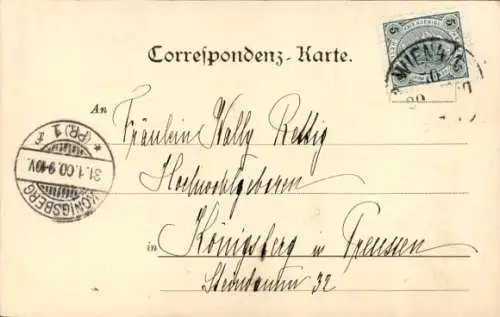 Correspondenz-Karte.
5 5
WIEN 4
An
Fräulein Wally Rettig
Hochwohlgeboren
in Königsberg in Preussen
Steindamm 32
KÖNIGSBERG
31.1.00. 9-10V.
* (PR.) 1